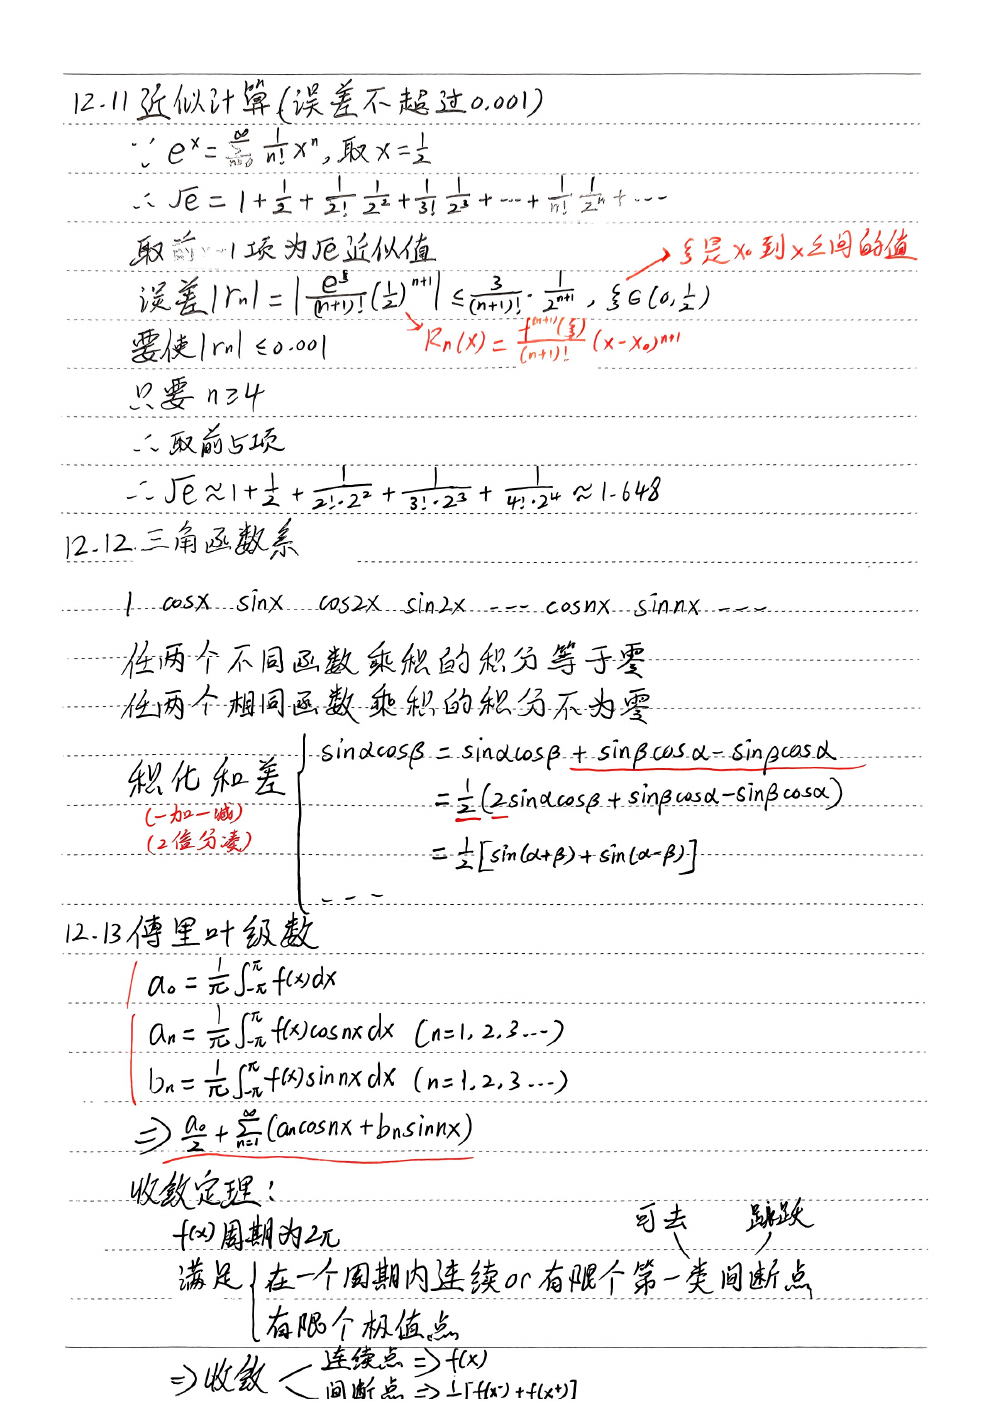 12.11 近似计算(误差不超过0.001)
∵ eˣ = ∑ₙ₌₀^∞ 1/n! xⁿ, 取 x = 1/2
∴ √e = 1 + 1/2 + 1/2! 1/2² + 1/3! 1/2³ + ... + 1/n! 1/2ⁿ + ...
取前 1项为√e近似值
ξ是x₀到x之间的值
误差|rₙ| = |e^ξ/(n+1)! (1/2)ⁿ⁺¹| ≤ 3/(n+1)! · 1/2ⁿ⁺¹, ξ∈(0, 1/2)
要使|rₙ| ≤ 0.001
Rₙ(x) = f⁽ⁿ⁺¹⁾(ξ)/(n+1)! (x-x₀)ⁿ⁺¹
只要 n≥4
∴ 取前5项
∴ √e ≈ 1 + 1/2 + 1/2!·2² + 1/3!·2³ + 1/4!·2⁴ ≈ 1.648
12.12 三角函数系
1 cosx sinx cos2x sin2x --- cosnx sinnx ---
任两个不同函数乘积的积分等于零
任两个相同函数乘积的积分不为零
积化和差
(一加一减)
(2倍分凑)
sinαcosβ = sinαcosβ + sinβcosα - sinβcosα
= 1/2 (2sinαcosβ + sinβcosα - sinβcosα)
= 1/2 [sin(α+β) + sin(α-β)]
---
12.13 傅里叶级数
a₀ = 1/π ∫₋π^π f(x)dx
aₙ = 1/π ∫₋π^π f(x)cosnxdx (n=1,2,3...)
bₙ = 1/π ∫₋π^π f(x)sinnxdx (n=1,2,3...)
⇒ a₀/2 + ∑ₙ₌₁^∞ (aₙcosnx + bₙsinnx)
收敛定理:
可去 跳跃
f(x)周期为2π
满足 在一个周期内连续or有限个第一类间断点
有限个极值点
⇒ 收敛
连续点 ⇒ f(x)
间断点 ⇒ [f(x⁻) + f(x⁺)]